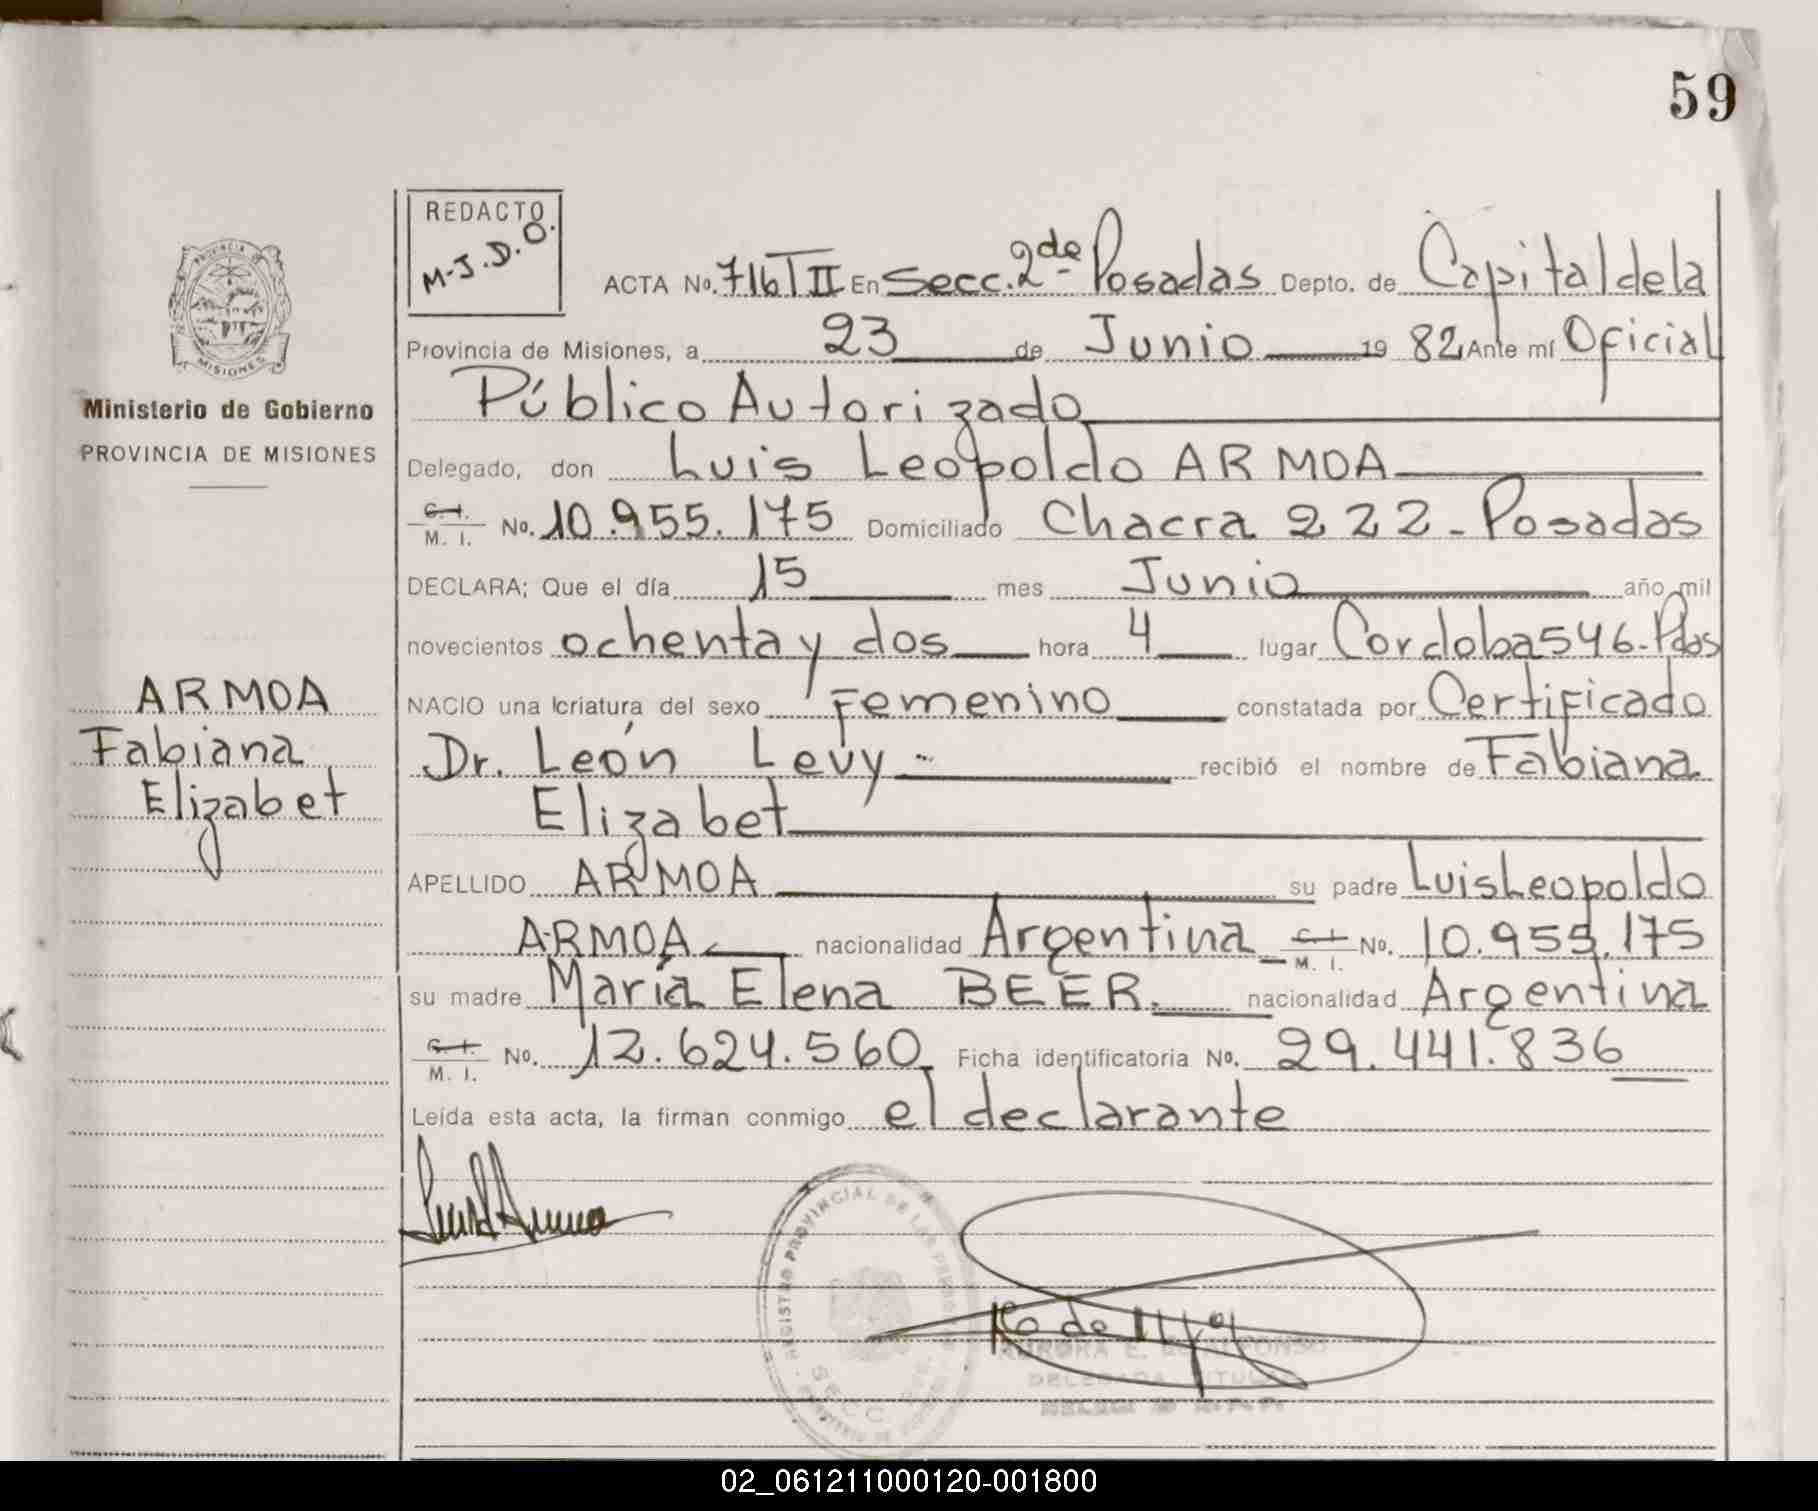 59
REDACTO
M.J.D.O.
PROVINCIA DE
MISIONES
Ministerio de Gobierno
PROVINCIA DE MISIONES
ARMOA
Fabiana
Elizabet
ACTA No. 716 T II En Secc. 2da Posadas Depto. de Capital de la
Provincia de Misiones, a 23 de Junio 1982 Ante mí Oficial
Público Autorizado
Delegado, don Luis Leopoldo ARMOA
C. I. / M. I. No. 10.955.175 Domiciliado Chacra 222 - Posadas
DECLARA; Que el día 15 mes Junio año mil
novecientos ochenta y dos hora 4 lugar Cordoba 546 - Pdas
NACIO una criatura del sexo Femenino constatada por Certificado
Dr. León Levy recibió el nombre de Fabiana
Elizabet
APELLIDO ARMOA su padre Luis Leopoldo
ARMOA nacionalidad Argentina C. I. / M. I. No. 10.955.175
su madre María Elena BEER. nacionalidad Argentina
C. I. / M. I. No. 12.624.560 Ficha identificatoria No. 29.441.836
Leída esta acta, la firman conmigo el declarante
REGISTRO PROVINCIAL DE LAS PERSONAS
SECC
AURORA E.
DELEGADA TITULAR
02_061211000120-001800